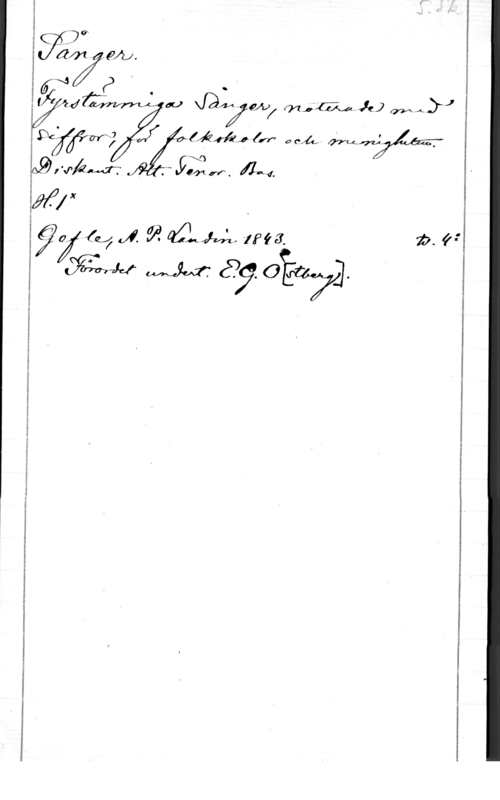 S. sk
Sånger.
Fyrstämmiga Sånger, noterade med
Siffror, för folkskolor och menigheten.
Diskant. Alt. Tenor. Bas.
H. 1x
Gefle, A. P. Landin 1843. tv. 4:
Förordet undert. E. G. Ö[stberg].